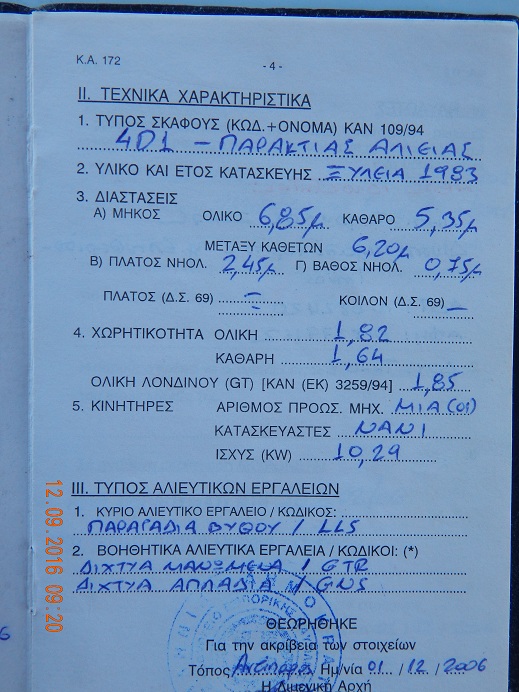 Κ.Α. 172
- 4 -
ΙΙ. ΤΕΧΝΙΚΑ ΧΑΡΑΚΤΗΡΙΣΤΙΚΑ
1. ΤΥΠΟΣ ΣΚΑΦΟΥΣ (ΚΩΔ.+ΟΝΟΜΑ) ΚΑΝ 109/94
4D1 - ΠΑΡΑΚΤΙΑΣ ΑΛΙΕΙΑΣ
2. ΥΛΙΚΟ ΚΑΙ ΕΤΟΣ ΚΑΤΑΣΚΕΥΗΣ ΞΥΛΕΙΑ 1983
3. ΔΙΑΣΤΑΣΕΙΣ
Α) ΜΗΚΟΣ ΟΛΙΚΟ 6,85μ ΚΑΘΑΡΟ 5,35μ
ΜΕΤΑΞΥ ΚΑΘΕΤΩΝ 6,20μ
Β) ΠΛΑΤΟΣ ΝΗΟΛ. 2,45μ Γ) ΒΑΘΟΣ ΝΗΟΛ. 0,75μ
ΠΛΑΤΟΣ (Δ.Σ. 69) - ΚΟΙΛΟΝ (Δ.Σ. 69) -
4. ΧΩΡΗΤΙΚΟΤΗΤΑ ΟΛΙΚΗ 1,82
ΚΑΘΑΡΗ 1,64
ΟΛΙΚΗ ΛΟΝΔΙΝΟΥ (GT) [ΚΑΝ (ΕΚ) 3259/94] 1,85
5. ΚΙΝΗΤΗΡΕΣ ΑΡΙΘΜΟΣ ΠΡΟΩΣ. ΜΗΧ. ΜΙΑ (01)
ΚΑΤΑΣΚΕΥΑΣΤΕΣ ΝΑΝΙ
ΙΣΧΥΣ (KW) 10,29
ΙΙΙ. ΤΥΠΟΣ ΑΛΙΕΥΤΙΚΩΝ ΕΡΓΑΛΕΙΩΝ
1. ΚΥΡΙΟ ΑΛΙΕΥΤΙΚΟ ΕΡΓΑΛΕΙΟ / ΚΩΔΙΚΟΣ:
ΠΑΡΑΓΑΔΙΑ ΒΥΘΟΥ / LLS
2. ΒΟΗΘΗΤΙΚΑ ΑΛΙΕΥΤΙΚΑ ΕΡΓΑΛΕΙΑ / ΚΩΔΙΚΟΙ: (*)
ΔΙΧΤΥΑ ΜΑΝΩΜΕΝΑ / GTR
ΔΙΧΤΥΑ ΑΠΛΑΔΙΑ / GNS
ΘΕΩΡΗΘΗΚΕ
Για την ακρίβεια των στοιχείων
Τόπος Αντίπαρος Ημ/νία 01 / 12 / 2006
Η Λιμενική Αρχή
12.09.2016 09:20